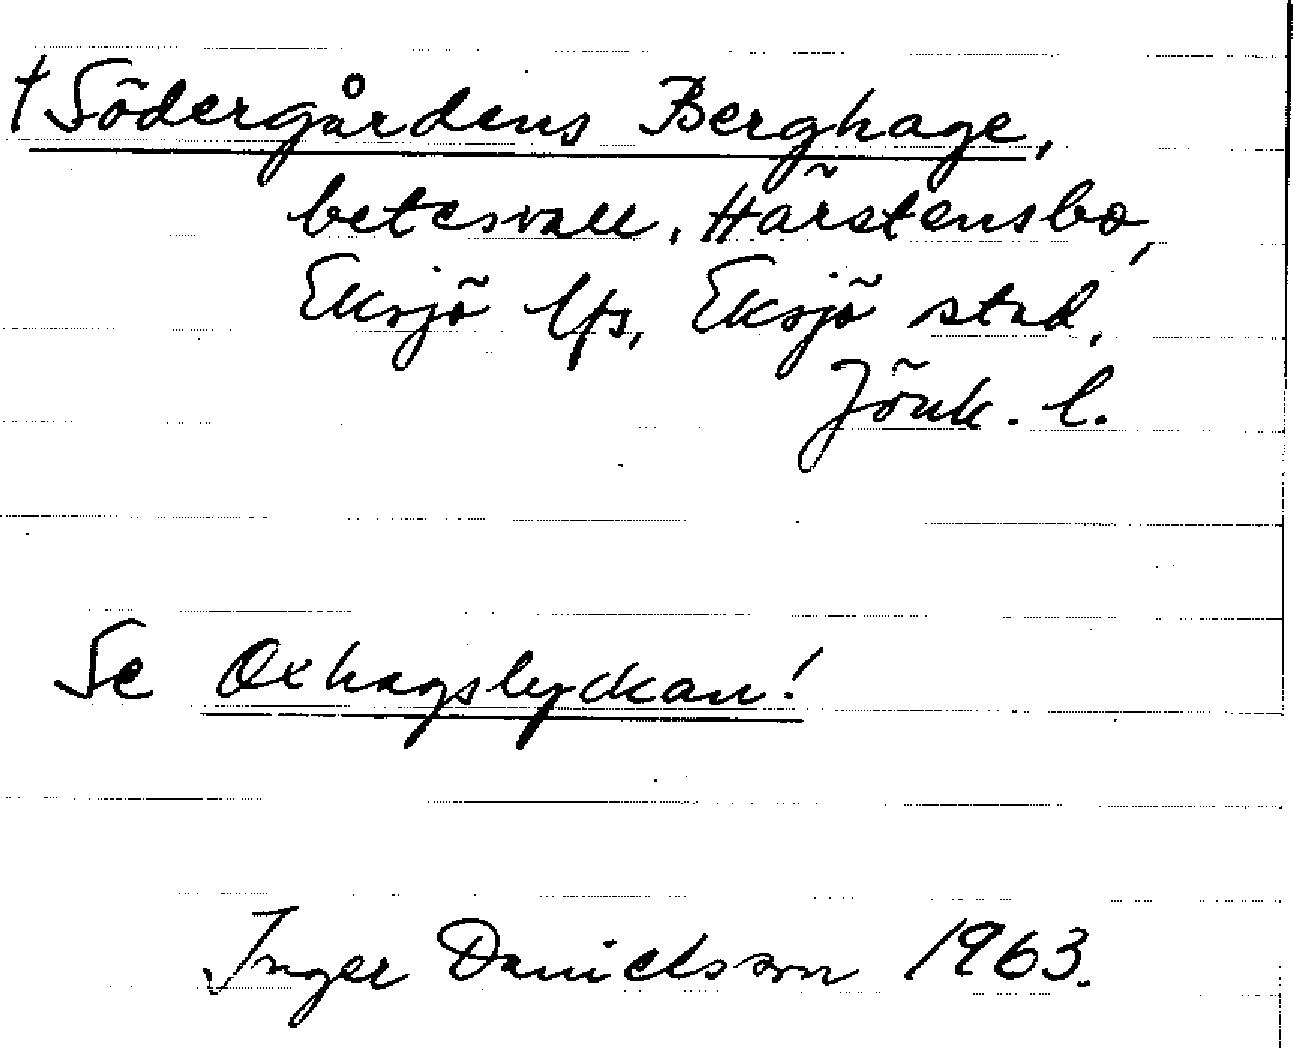 † Södergårdens Berghage,
betesvall, Härstensbo,
Eksjö lfs, Eksjö stad,
Jönk. l.
Se Oxhagslyckan!
Inger Danielsson 1963.